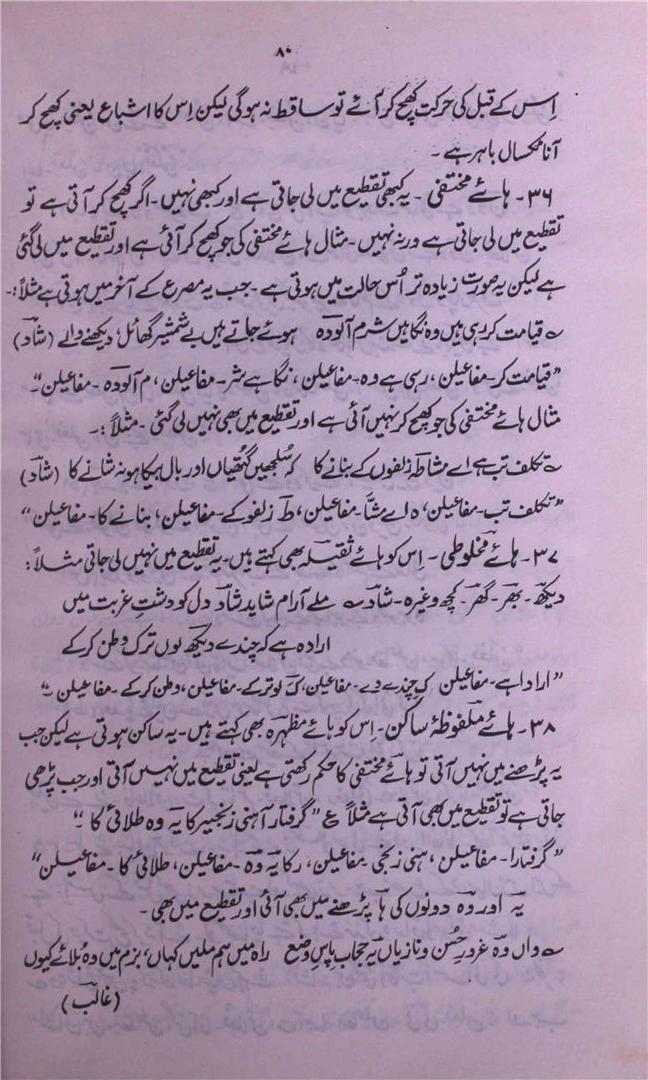 ۸۰
اِس کے قبل کی حرکت کھچ کر آئے تو ساقط نہ ہوگی لیکن اِس کا اشباع یعنی کھچ کر
آنا ٹکسال باہر ہے ۔
۳۶۔ ہائے مختفی ۔ یہ کبھی تقطیع میں لی جاتی ہے اور کبھی نہیں ۔ اگر کھچ کر آتی ہے تو
تقطیع میں لی جاتی ہے ورنہ نہیں ۔ مثال ہائے مختفی کی جو کھچ کر آئی ہے اور تقطیع میں لی گئی
ہے لیکن یہ صورت زیادہ تر اُس حالت میں ہوتی ہے ۔ جب یہ مصرع کے آخر میں ہوتی ہے مثلاً :۔
؎ قیامت کر رہی ہیں وہ نگاہیں شرم آلودہ ہوئے جاتے ہیں بے شمشیر گھائل دیکھنے والے (شاد)
”قیامت کر ۔ مفاعیلن ، رہی ہے وہ ۔ مفاعیلن ، نگاہے شر ۔ مفاعیلن ، م آلودہ ۔ مفاعیلن“۔
مثال ہائے مختفی کی جو کھچ کر نہیں آئی ہے اور تقطیع میں بھی نہیں لی گئی ۔ مثلاً :۔
؎ تکلف تب ہے اے مشاطہ زلفوں کے بنانے کا کہ سُلجھیں گتھیاں اور بال بیکا ہو نہ شانے کا (شاد)
”تکلف تب ۔ مفاعیلن ، ہ اے مشّا ۔ مفاعیلن ، طَ زلفو کے ۔ مفاعیلن ، بنانے کا ۔ مفاعیلن“
۳۷۔ ہائے مخلوطی ۔ اِس کو ہائے ثقیلہ بھی کہتے ہیں ۔ یہ تقطیع میں نہیں لی جاتی مثلاً :
دیکھ ۔ بھر ۔ گھر ۔ کچھ وغیرہ ۔ شاد ؎ ملے آرام شاید شاد دل کو دشتِ غربت میں
ارادہ ہے کہ چندے دیکھ لوں ترک وطن کر کے
”ارادا ہے ۔ مفاعیلن کِ چندے دے ۔ مفاعیلن ، ک لو تر کے ۔ مفاعیلن ، وطن کر کے ۔ مفاعیلن ۔“
۳۸۔ ہائے ملفوظۂ ساکن ۔ اِس کو ہائے مظہرہ بھی کہتے ہیں ۔ یہ ساکن ہوتی ہے لیکن جب
یہ پڑھنے میں نہیں آتی تو ہائے مختفی کا حکم رکھتی ہے یعنی تقطیع میں نہیں آتی اور جب پڑھی
جاتی ہے تو تقطیع میں بھی آتی ہے مثلاً ع ”گرفتار آہنی زنجیر کا یہ وہ طلائی کا ۔“
”گرفتارا ۔ مفاعیلن ، ہنی زنجی مفاعیلن ، رکا یہ وہ ۔ مفاعیلن ، طلائی کا ۔ مفاعیلن“
یہ اور وہ دونوں کی ہا پڑھنے میں بھی آئی اور تقطیع میں بھی ۔
؎ واں وہ غرورِ حُسن و ناز یاں یہ حجاب پاسِ وضع راہ میں ہم ملیں کہاں ، بزم میں وہ بُلائے کیوں
(غالب)